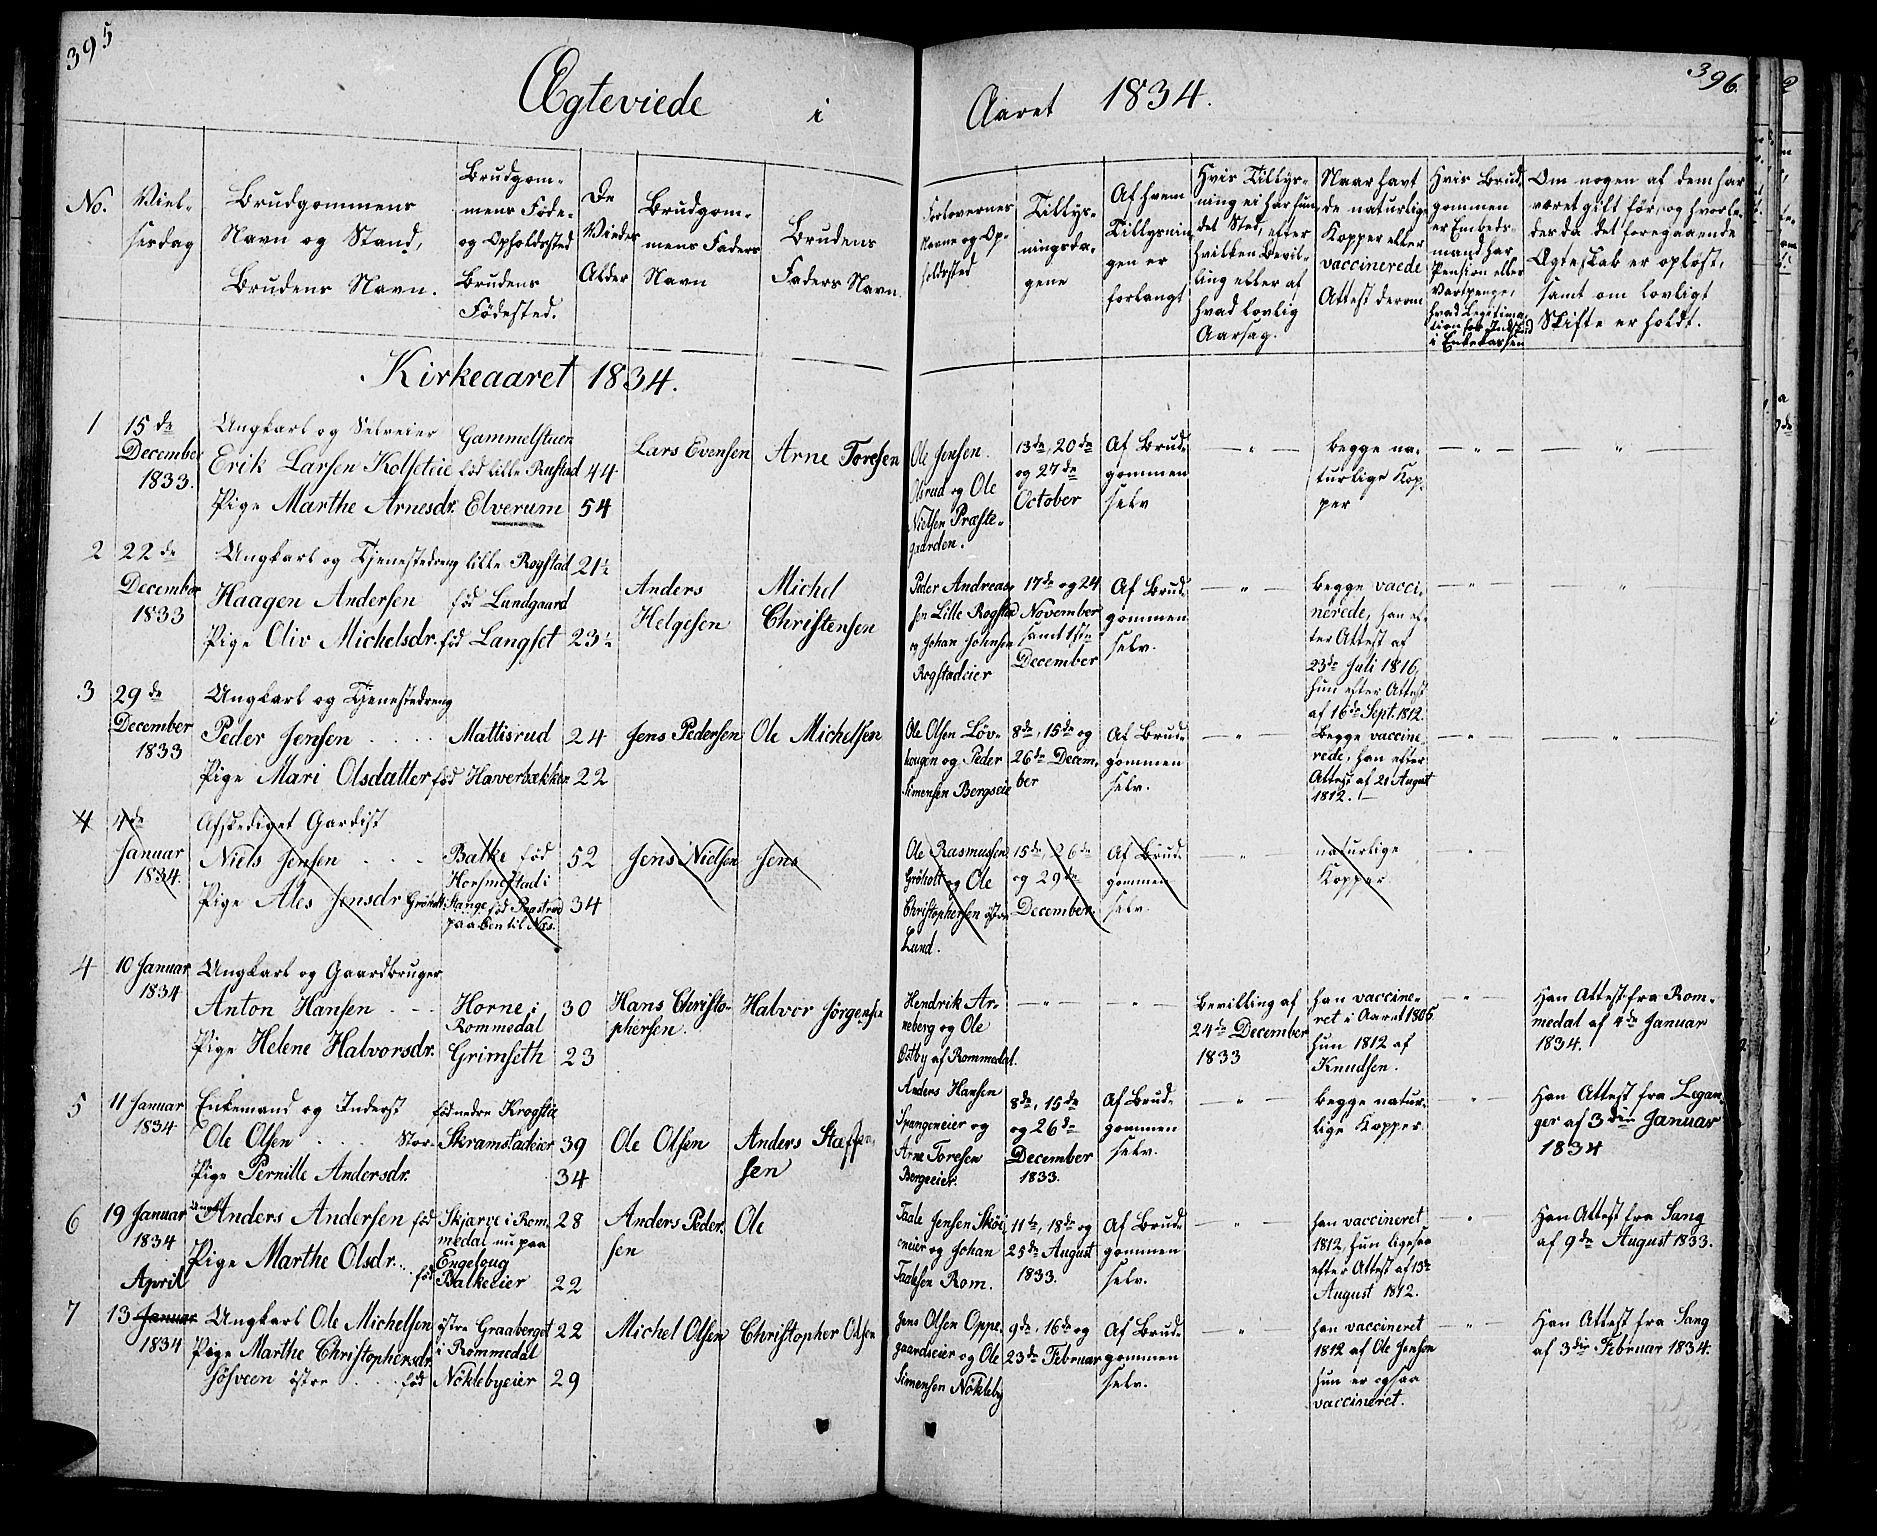 395
Ægteviede i
Aaret 1834.
396.
No.
Viel-
sesdag
Brudgommens
Navn og Stand,
Brudens Navn.
Brudgom-
mens Føde-
og Opholdssted
Brudens
Fødested.
De
Viedes
Alder
Brudgom-
mens Faders
Navn
Brudens
Faders Navn.
Forlovernes
Navne og Op-
holdssted
Tillys-
ningsda-
gene
Af hvem
Tillysnin-
gen er
forlangt
Hvis Tillys-
ning ei har fun-
det Sted, efter
hvilken Bevil-
ling eller af
hvad lovlig
Aarsag.
Naar havt
de naturlige
Kopper eller
vaccinerede
Attest derom
Hvis Brud-
gommen
er Embeds-
mand har
Pension eller
Vartpenge,
hvad Legitima-
tion for Indskud
i Enkekassen
Om nogen af dem har
været gift før, og hvorle-
des da det foregaaende
Ægteskab er opløst,
samt om lovligt
Skifte er holdt.
Kirkeaaret 1834.
1
15de
December
1833.
Ungkarl og Selveier
Erik Larsen Kolseteie
Pige Marthe Arnesdr.
Gammelstuen
fød lille Rustad
Elverum
44
54
Lars Evensen
Arne Toresen
Ole Jensen
Olsrud og Ole
Nielsen Præste-
gaarden.
13de, 20de
og 27de
October
Af Brud-
gommen
selv
— " —
begge na-
turlige Kop-
per
— " —
— " —
2
22de
December
1833
Ungkarl og Tjenestedreng
Haagen Andersen
Pige Oliv Michelsdr. fød
lille Rogstad
fød Lundgaard
Langset
21½
23½
Anders
Helgesen
Michel
Christensen
Peder Andreas-
sen Lille Rogstad
og Johan Johnsen
Rogstadeier
17de og 24
November
samt 1ste
December
Af Brud-
gommen
selv.
— " —
begge vacci-
nerede, han ef-
ter Attest af
23de Juli 1816,
hun efter Attest
af 16de Sept. 1812.
— " —
— " —
3
29de
December
1833
Ungkarl og Tjenestedreng
Peder Jensen . . . .
Pige Mari Olsdatter fød
Mattisrud
Haverbækken
24
22
Jens Pedersen
Ole Michelsen
Ole Olsen Løv-
haugen og Peder
Simensen Bergseie
8de, 15de og
26de Decem-
ber
Af Brud-
gommen
selv.
— " —
Begge vaccine-
rede, han efter
Attest af 21 August
1812. —
— " —
— " —
4
4de
Januar
1834.
Afskediget Gardist
Niels Jensen . . .
Pige Ales Jensdr Grøholt
Balke fød
i
Stange fød
paa Ben til Næs.
52
34
Jens Nielsen
Jens
Ole Rasmussen
Grøholt og Ole
Christophersen østre
Lund.
15de, 26de
og 29de
December.
Af Brud-
gommen
selv.
— " —
naturlige
Kopper.
— " —
4
10 Januar
1834
Ungkarl og Gaardbruger
Anton Hansen . . .
Pige Helene Halvorsdr.
Horne i
Rommedal
Grimseth
30
23
Hans Christo-
phersen.
Halvor Jørgensen
Hendrik Ar-
neberg og Ole
Østby af Rommedal.
— " —
— " —
Bevilling af
24de December
1833
han vaccine-
ret i Aaret 1806
hun 1812 af
Knudsen.
— " —
Han Attest fra Rom-
medal af 4de Januar
1834.
5
11 Januar
1834
Enkemand og Inderst
Ole Olsen . . . . Stor-
Pige Pernille Andersdr.
fød nedre Krogstie
Skramstadeier
39
34
Ole Olsen
Anders Staffen-
sen
Anders Hansen
Spangeneier og
Arne Toresen
Bergeeier.
8de, 15de
og 26de
December
1833.
Af Brud-
gommen
selv.
— " —
begge natur-
lige Kopper
— " —
Han Attest fra Legan-
ger af 3die Januar
1834
6
19 Januar
1834
Ungk. Anders Andersen fød
Pige Marthe Olsdr. . . fød
Skjærve i Rom
medal nu paa
Engeloug
Balkeeier
28
22
Anders Peder-
sen
Ole
Taale Jensen
eneier og Johan
Taalesen Rom.
11te, 18de og
25de August
1833.
Af Brud-
gommen
selv.
— " —
han vaccineret
1812, hun ligesaa
efter Attest af 13de
August 1812.
— " —
Han Attest fra Vang
af 9de August 1833.
7
April
13 Januar
1834
Ungkarl Ole Michelsen
Pige Marthe Christophersdr.
Søsveen østre . . . fød
østre Graaberget
i Rommedal
Nøklebyeier
22
29
Michel Olsen
Christopher Olsen
Jens Olsen Oppe-
gaardseier og Ole
Simensen Nøkleby
9de, 16de og
23de Februar
Af Brud-
gommen
selv.
— " —
han vaccineret
1812 af Ole Jensen
hun er ogsaa
vaccineret.
— " —
Han Attest fra Vang
af 3die Februar 1834.